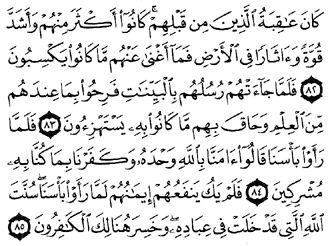 كَانَ عَٰقِبَةُ ٱلَّذِينَ مِن قَبۡلِهِمۡۚ كَانُوٓاْ أَكۡثَرَ مِنۡهُمۡ وَأَشَدَّ
قُوَّةٗ وَءَاثَارٗا فِي ٱلۡأَرۡضِ فَمَآ أَغۡنَىٰ عَنۡهُم مَّا كَانُواْ يَكۡسِبُونَ
٨٢ فَلَمَّا جَآءَتۡهُمۡ رُسُلُهُم بِٱلۡبَيِّنَٰتِ فَرِحُواْ بِمَا عِندَهُم
مِّنَ ٱلۡعِلۡمِ وَحَاقَ بِهِم مَّا كَانُواْ بِهِۦ يَسۡتَهۡزِءُونَ ٨٣ فَلَمَّا
رَأَوۡاْ بَأۡسَنَا قَالُوٓاْ ءَامَنَّا بِٱللَّهِ وَحۡدَهُۥ وَكَفَرۡنَا بِمَا كُنَّا بِهِۦ
مُشۡرِكِينَ ٨٤ فَلَمۡ يَكُ يَنفَعُهُمۡ إِيمَٰنُهُمۡ لَمَّا رَأَوۡاْ بَأۡسَنَاۖ سُنَّتَ
ٱللَّهِ ٱلَّتِي قَدۡ خَلَتۡ فِي عِبَادِهِۦۖ وَخَسِرَ هُنَالِكَ ٱلۡكَٰفِرُونَ ٨٥